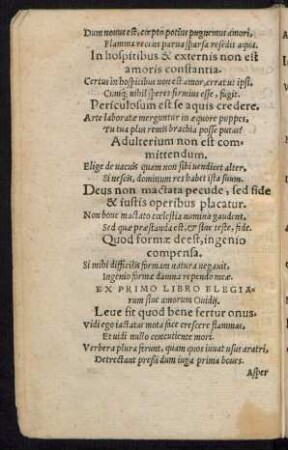 Dum nouus est, cœpto potius pugnemus amori,
Flamma recens parua sparsa resedit aqua.
In hospitibus & externis non est
amoris constantia.
Certus in hospitibus non est amor, errat ut ipsi.
Cumq; nihil speres firmius esse, fugit.
Periculosum est se aquis credere.
Arte laboratæ merguntur in æquore puppes,
Tu tua plus remis brachia posse putas?
Adulterium non est com-
mittendum.
Elige de uacuis quam non sibi uendicet alter,
Si nescis, dominum res habet ista suum.
Deus non mactata pecude, sed fide
& iustis operibus placatur.
Non boue mactato cœlestia numina gaudent,
Sed quæ præstanda est, & sine teste, fide.
Quod formæ deest, ingenio
compensa.
Si mihi difficilis formam natura negauit,
Ingenio formæ damna rependo meæ.
EX PRIMO LIBRO ELEGIA-
rum siue amorum Ouidij.
Leue fit quod bene fertur onus.
Vidi ego iactatas mota face crescere flammas,
Et uidi nullo concutiente mori.
Verbera plura ferunt, quam quos iuuat usus aratri,
Detrectant pressi dum iuga prima boues.
Asper